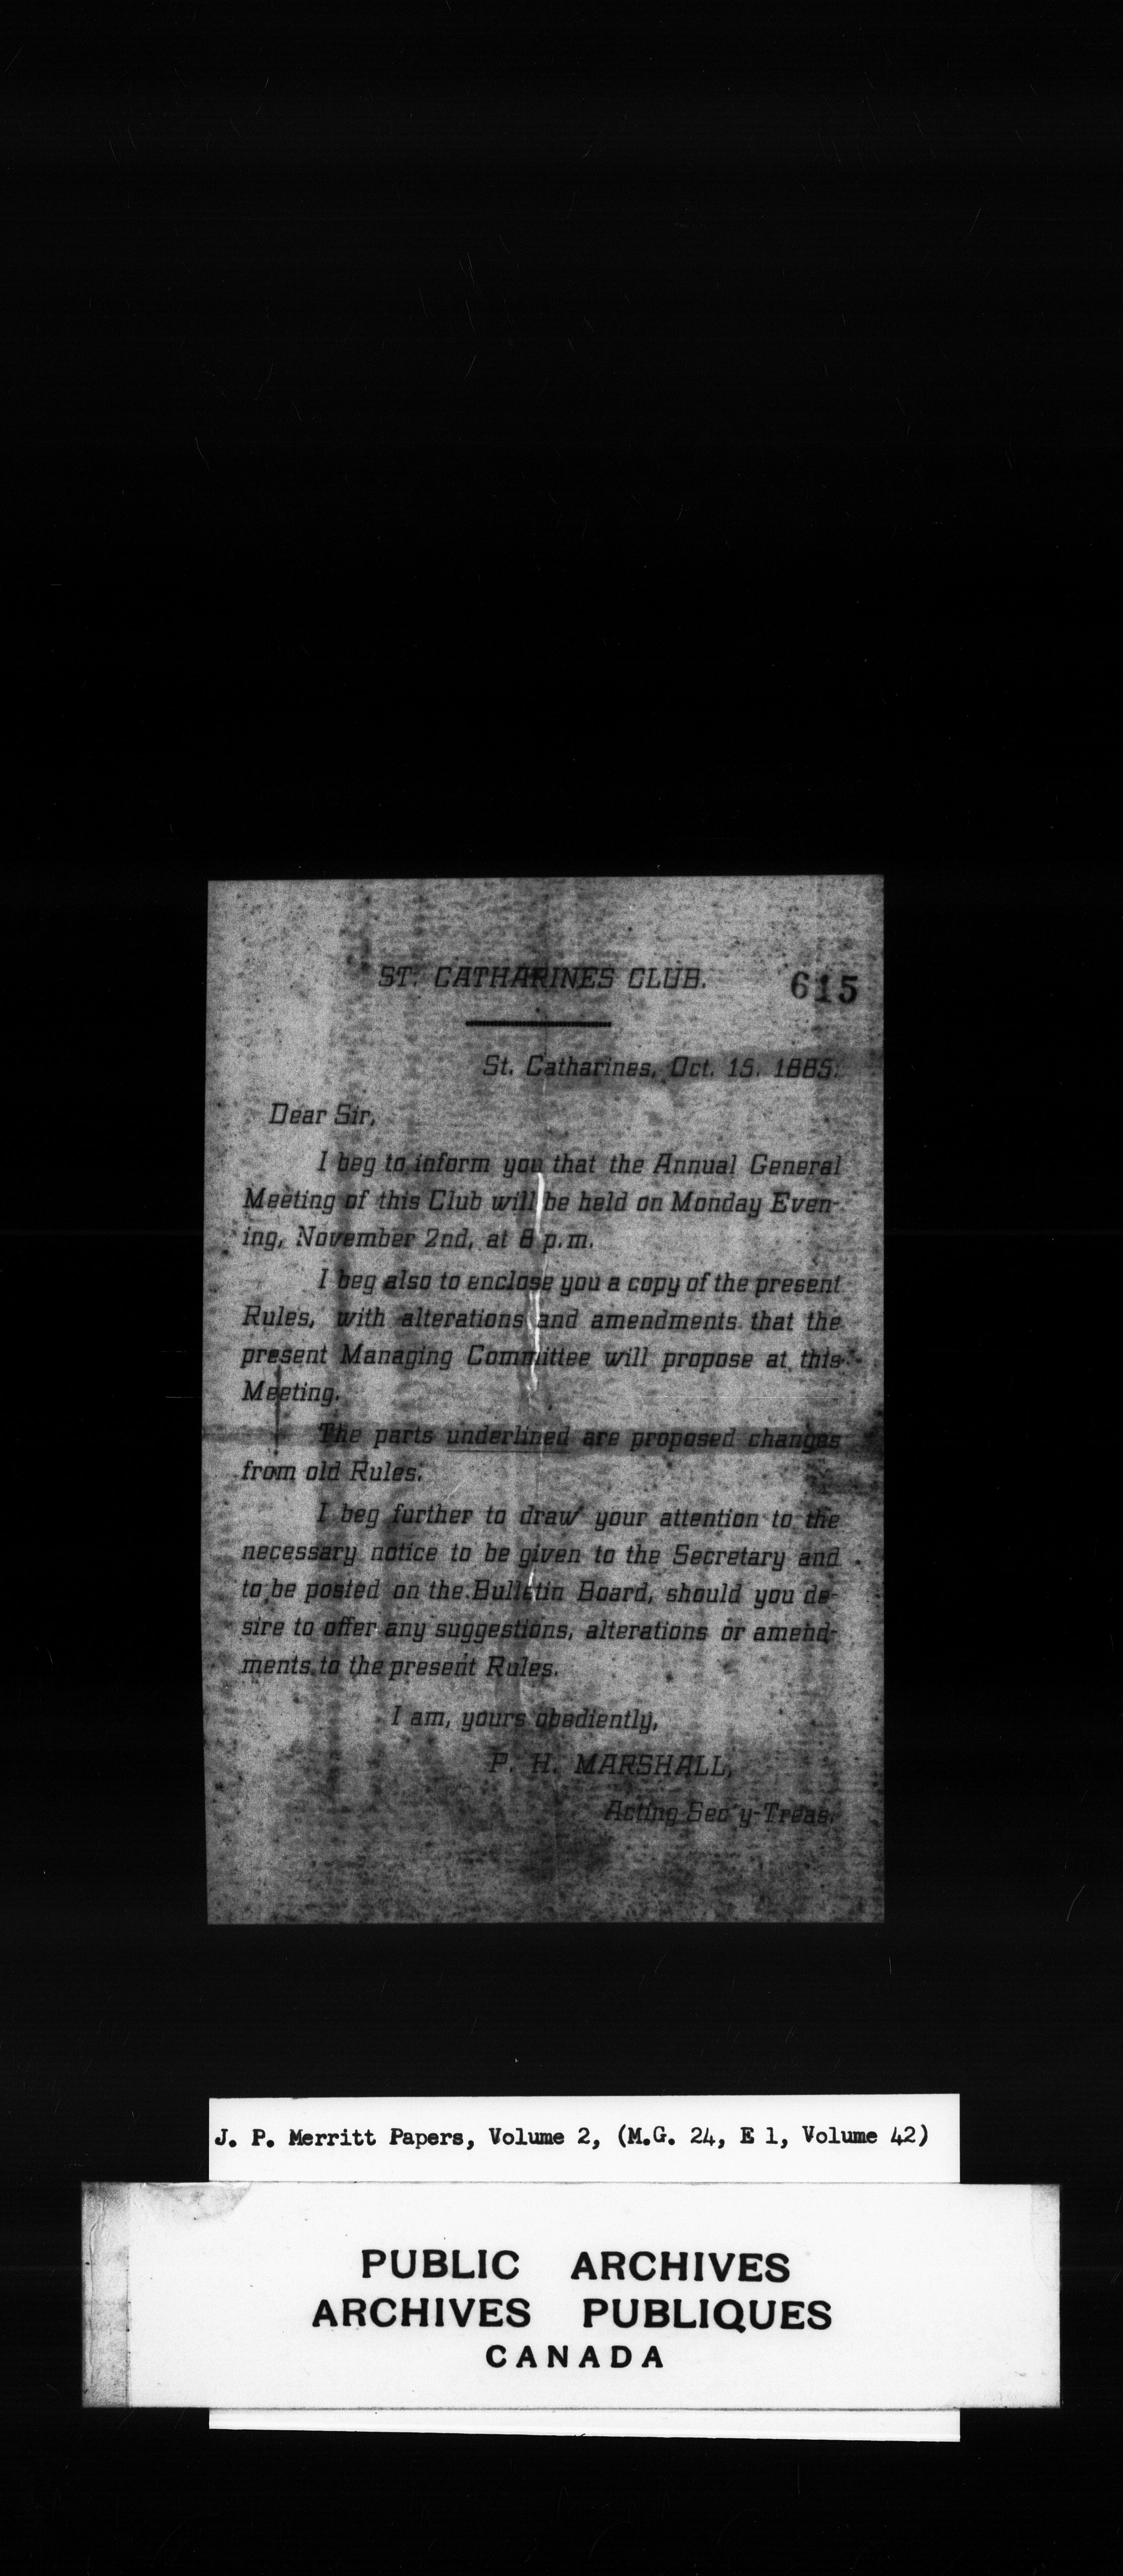 ST. CATHARINES CLUB.
615
St. Catharines, Oct. 15. 1885.
Dear Sir,
I beg to inform you that the Annual General
Meeting of this Club will be held on Monday Even-
ing, November 2nd, at 8 p.m.
I beg also to enclose you a copy of the present
Rules, with alterations and amendments that the
present Managing Committee will propose at this
Meeting.
The parts underlined are proposed changes
from old Rules.
I beg further to draw your attention to the
necessary notice to be given to the Secretary and
to be posted on the Bulletin Board, should you de-
sire to offer any suggestions, alterations or amend-
ments to the present Rules.
I am, yours obediently,
P. H. MARSHALL,
Acting Sec'y-Treas.
J. P. Merritt Papers, Volume 2, (M.G. 24, E 1, Volume 42)
PUBLIC ARCHIVES
ARCHIVES PUBLIQUES
CANADA